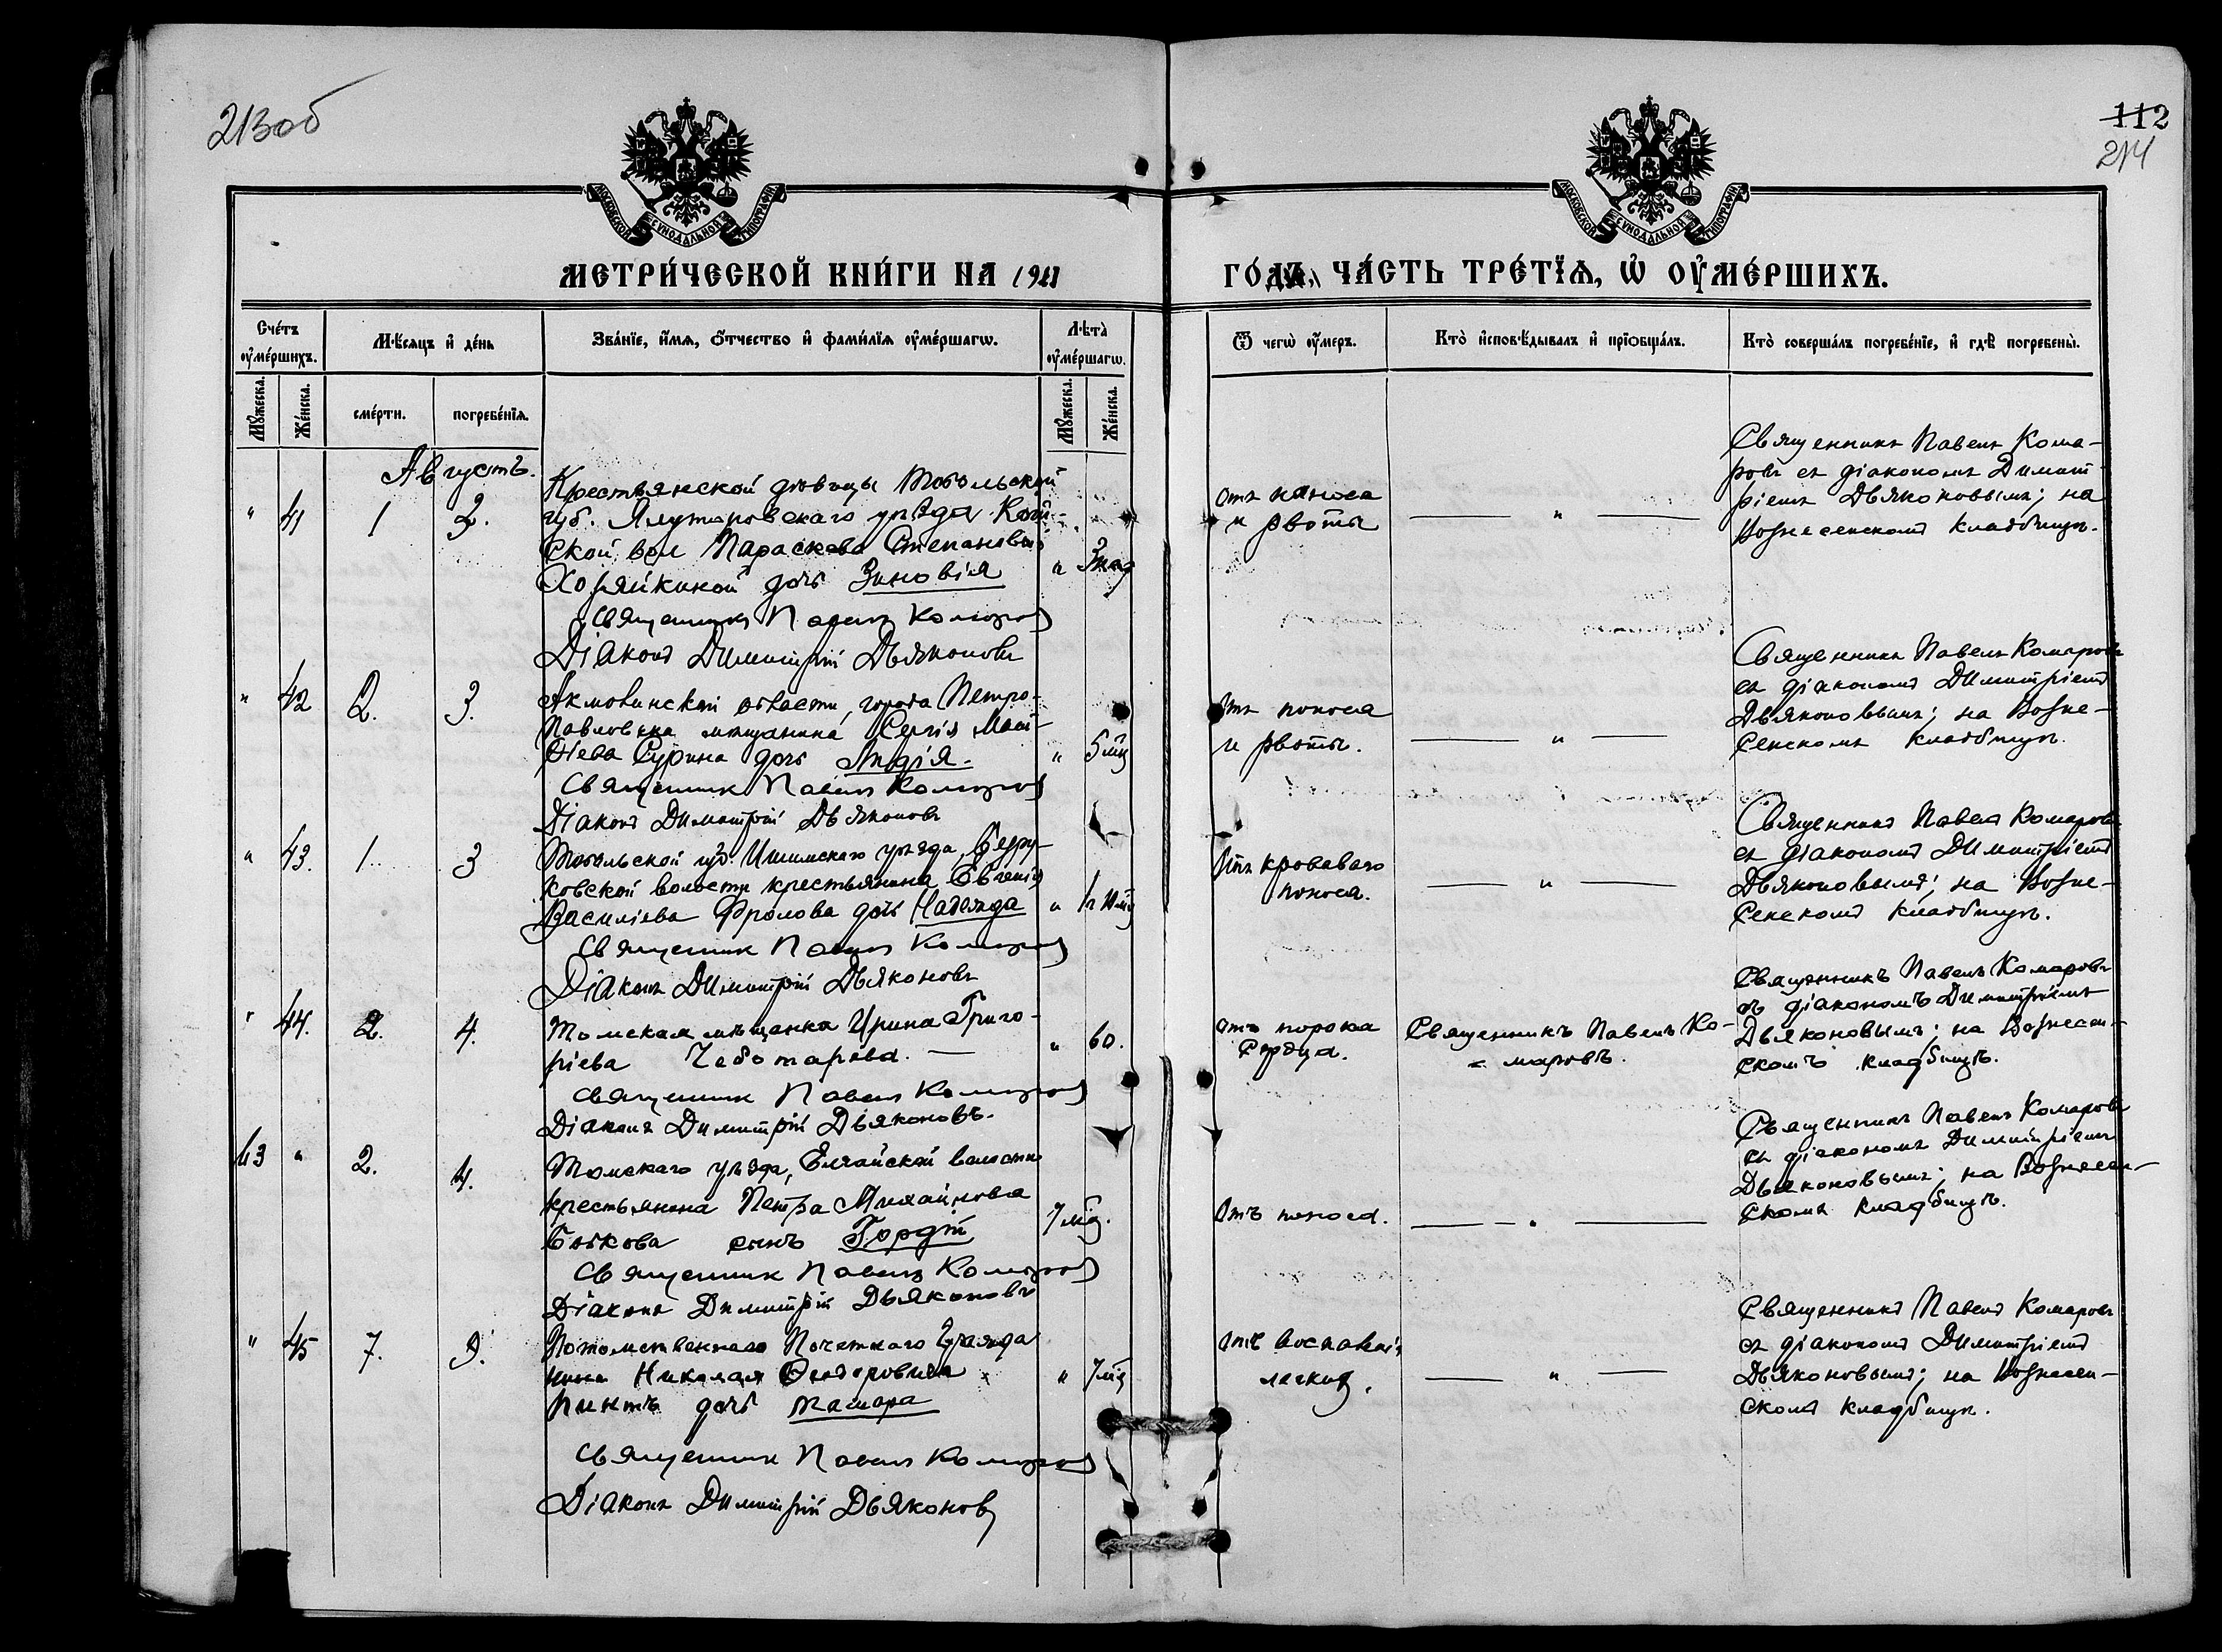 213об
112
214
МОСКОВСКОЙ СѴНОДАЛЬНОЙ ТИПОГРАФІИ
МОСКОВСКОЙ СѴНОДАЛЬНОЙ ТИПОГРАФІИ
МЕТРИ́ЧЕСКОЙ КНИ́ГИ НА
ГО́ДЪ, ЧА́СТЬ ТРЕ́ТЇѦ, Ѡ҆ ОУ҆МЕ́РШИХЪ.
Сче́тъ оу҆ме́ршихъ.
Мѣ́сяцъ и҆ де́нь
Зва́нїе, и҆́мя, ѻ҆́тчество и҆ фами́лїя оу҆ме́ршагѡ.
Лѣта̀ оу҆ме́ршагѡ.
Ѿ чегѡ̀ оу҆́меръ.
Кто̀ и҆сповѣ́дывалъ и҆ прїѡбща́лъ.
Кто̀ соверша́лъ погребе́нїе, и҆ гдѣ̀ погребены̀.
Мꙋ́жеска.
Же́нска.
сме́рти.
погребе́нїя.
Мꙋ́жеска.
Же́нска.
Августъ.
" 41 1 2.
Крестьянской дѣвицы Тобольской
губ. Ялуторовскаго уѣзда
ской вол Параскева Степановы
Хозяйкиной дочь Зиновія
"
Священникъ Павелъ Комаровъ
Діаконъ Димитрій Дьяконовъ
отъ поноса
и рвоты
— " —
Священникъ Павелъ Кома-
ровъ съ діакономъ Димит-
ріемъ Дьяконовымъ; на
Вознесенскомъ кладбищѣ.
" 42 2. 3.
Акмолинской области, города Петро-
павловска мѣщанина Сергія Мат-
ѳіева Сурина дочь Лидія.
" 5 мц
Священникъ Павелъ Комаровъ
Діаконъ Димитрій Дьяконовъ
Отъ поноса
и рвоты.
— " —
Священникъ Павелъ Комаровъ
съ діакономъ Димитріемъ
Дьяконовымъ; на Возне-
сенскомъ кладбищѣ.
" 43. 1. 3
Тобольской губ. Ишимскаго уѣзда,
ковской волости крестьянина Евгенія
Василіева Фролова дочь Надежда
"
Священникъ Павелъ Комаровъ
Діаконъ Димитрій Дьяконовъ
Отъ кроваваго
поноса.
— " —
Священникъ Павелъ Комаровъ
съ діакономъ Димитріемъ
Дьяконовымъ; на Возне-
сенскомъ кладбищѣ.
" 44. 2. 4.
Томская мѣщанка Ирина Григо-
ріева Чеботарева. —
" 60.
Священникъ Павелъ Комаровъ
Діаконъ Димитрій Дьяконовъ.
отъ порока
сердца.
Священникъ Павелъ Ко-
маровъ.
Священникъ Павелъ Комаровъ
съ діакономъ Димитріемъ
Дьяконовымъ; на Вознесен-
скомъ кладбищѣ.
43 " 2. 4.
Томскаго уѣзда, Елгайской волости
крестьянина Петра Михайлова
сынъ Гордій
7 мц.
Священникъ Павелъ Комаровъ
Діаконъ Димитрій Дьяконовъ
Отъ поноса.
— " —
Священникъ Павелъ Комаровъ
съ діакономъ Димитріемъ
Дьяконовымъ; на Вознесен-
скомъ кладбищѣ.
" 45 7. 9.
Потомственнаго Почетнаго Гражда
нина Николая Ѳеодоровича
дочь Тамара
" 7 мц
Священникъ Павелъ Комаровъ
Діаконъ Димитрій Дьяконовъ
отъ воспаленія
легкихъ.
— " —
Священникъ Павелъ Комаровъ
съ діакономъ Димитріемъ
Дьяконовымъ; на Вознесен-
скомъ кладбищѣ.